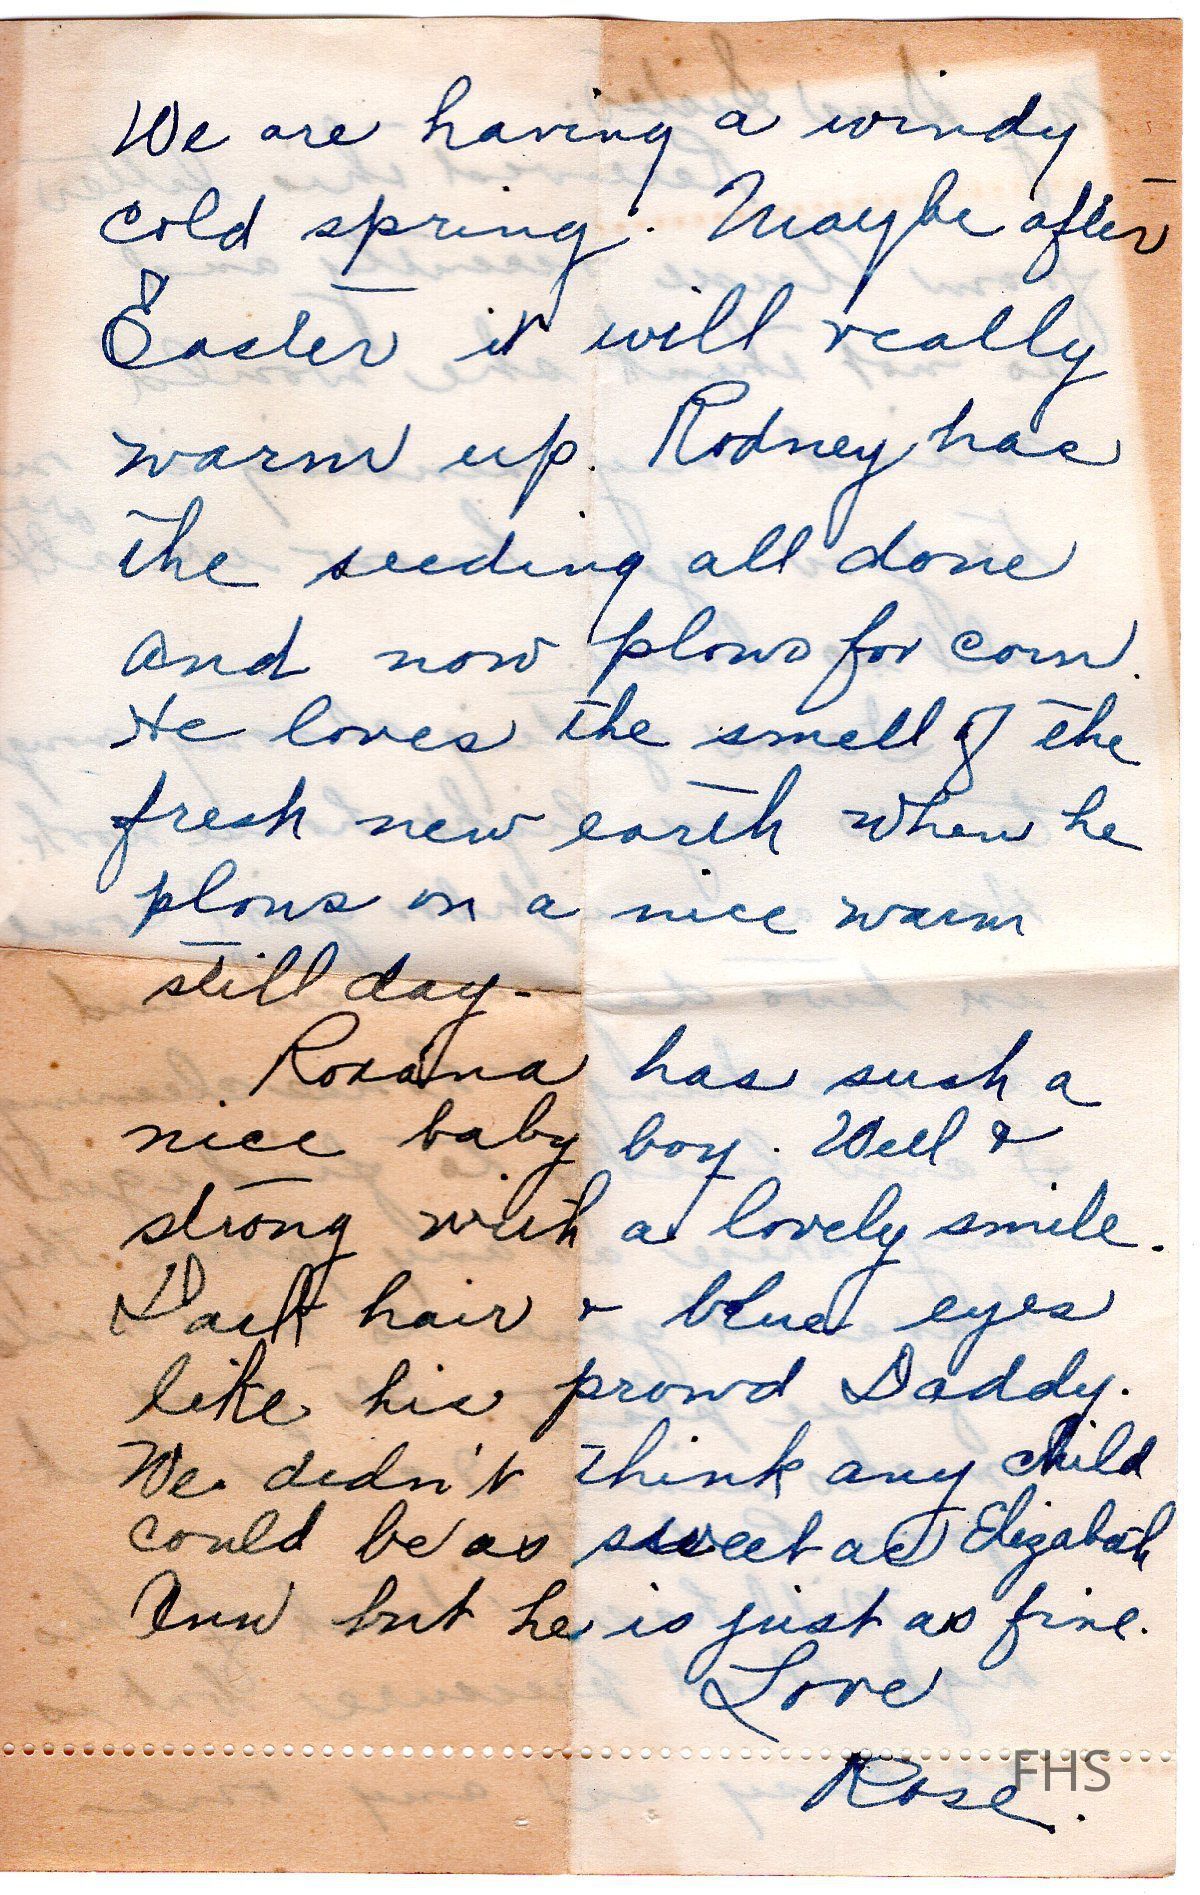 We are having a windy
cold spring. Maybe after
Easter it will really
warm up. Rodney has
the seeding all done
and now plows for corn.
He loves the smell of the
fresh new earth when he
plows on a nice warm
still day.
Roxana has such a
nice baby boy. Well &
strong with a lovely smile.
Dark hair & blue eyes
like his proud Daddy.
We didn't think any child
could be as sweet as Elizabeth
Ann but he is just as fine.
Love
Rose.
FHS